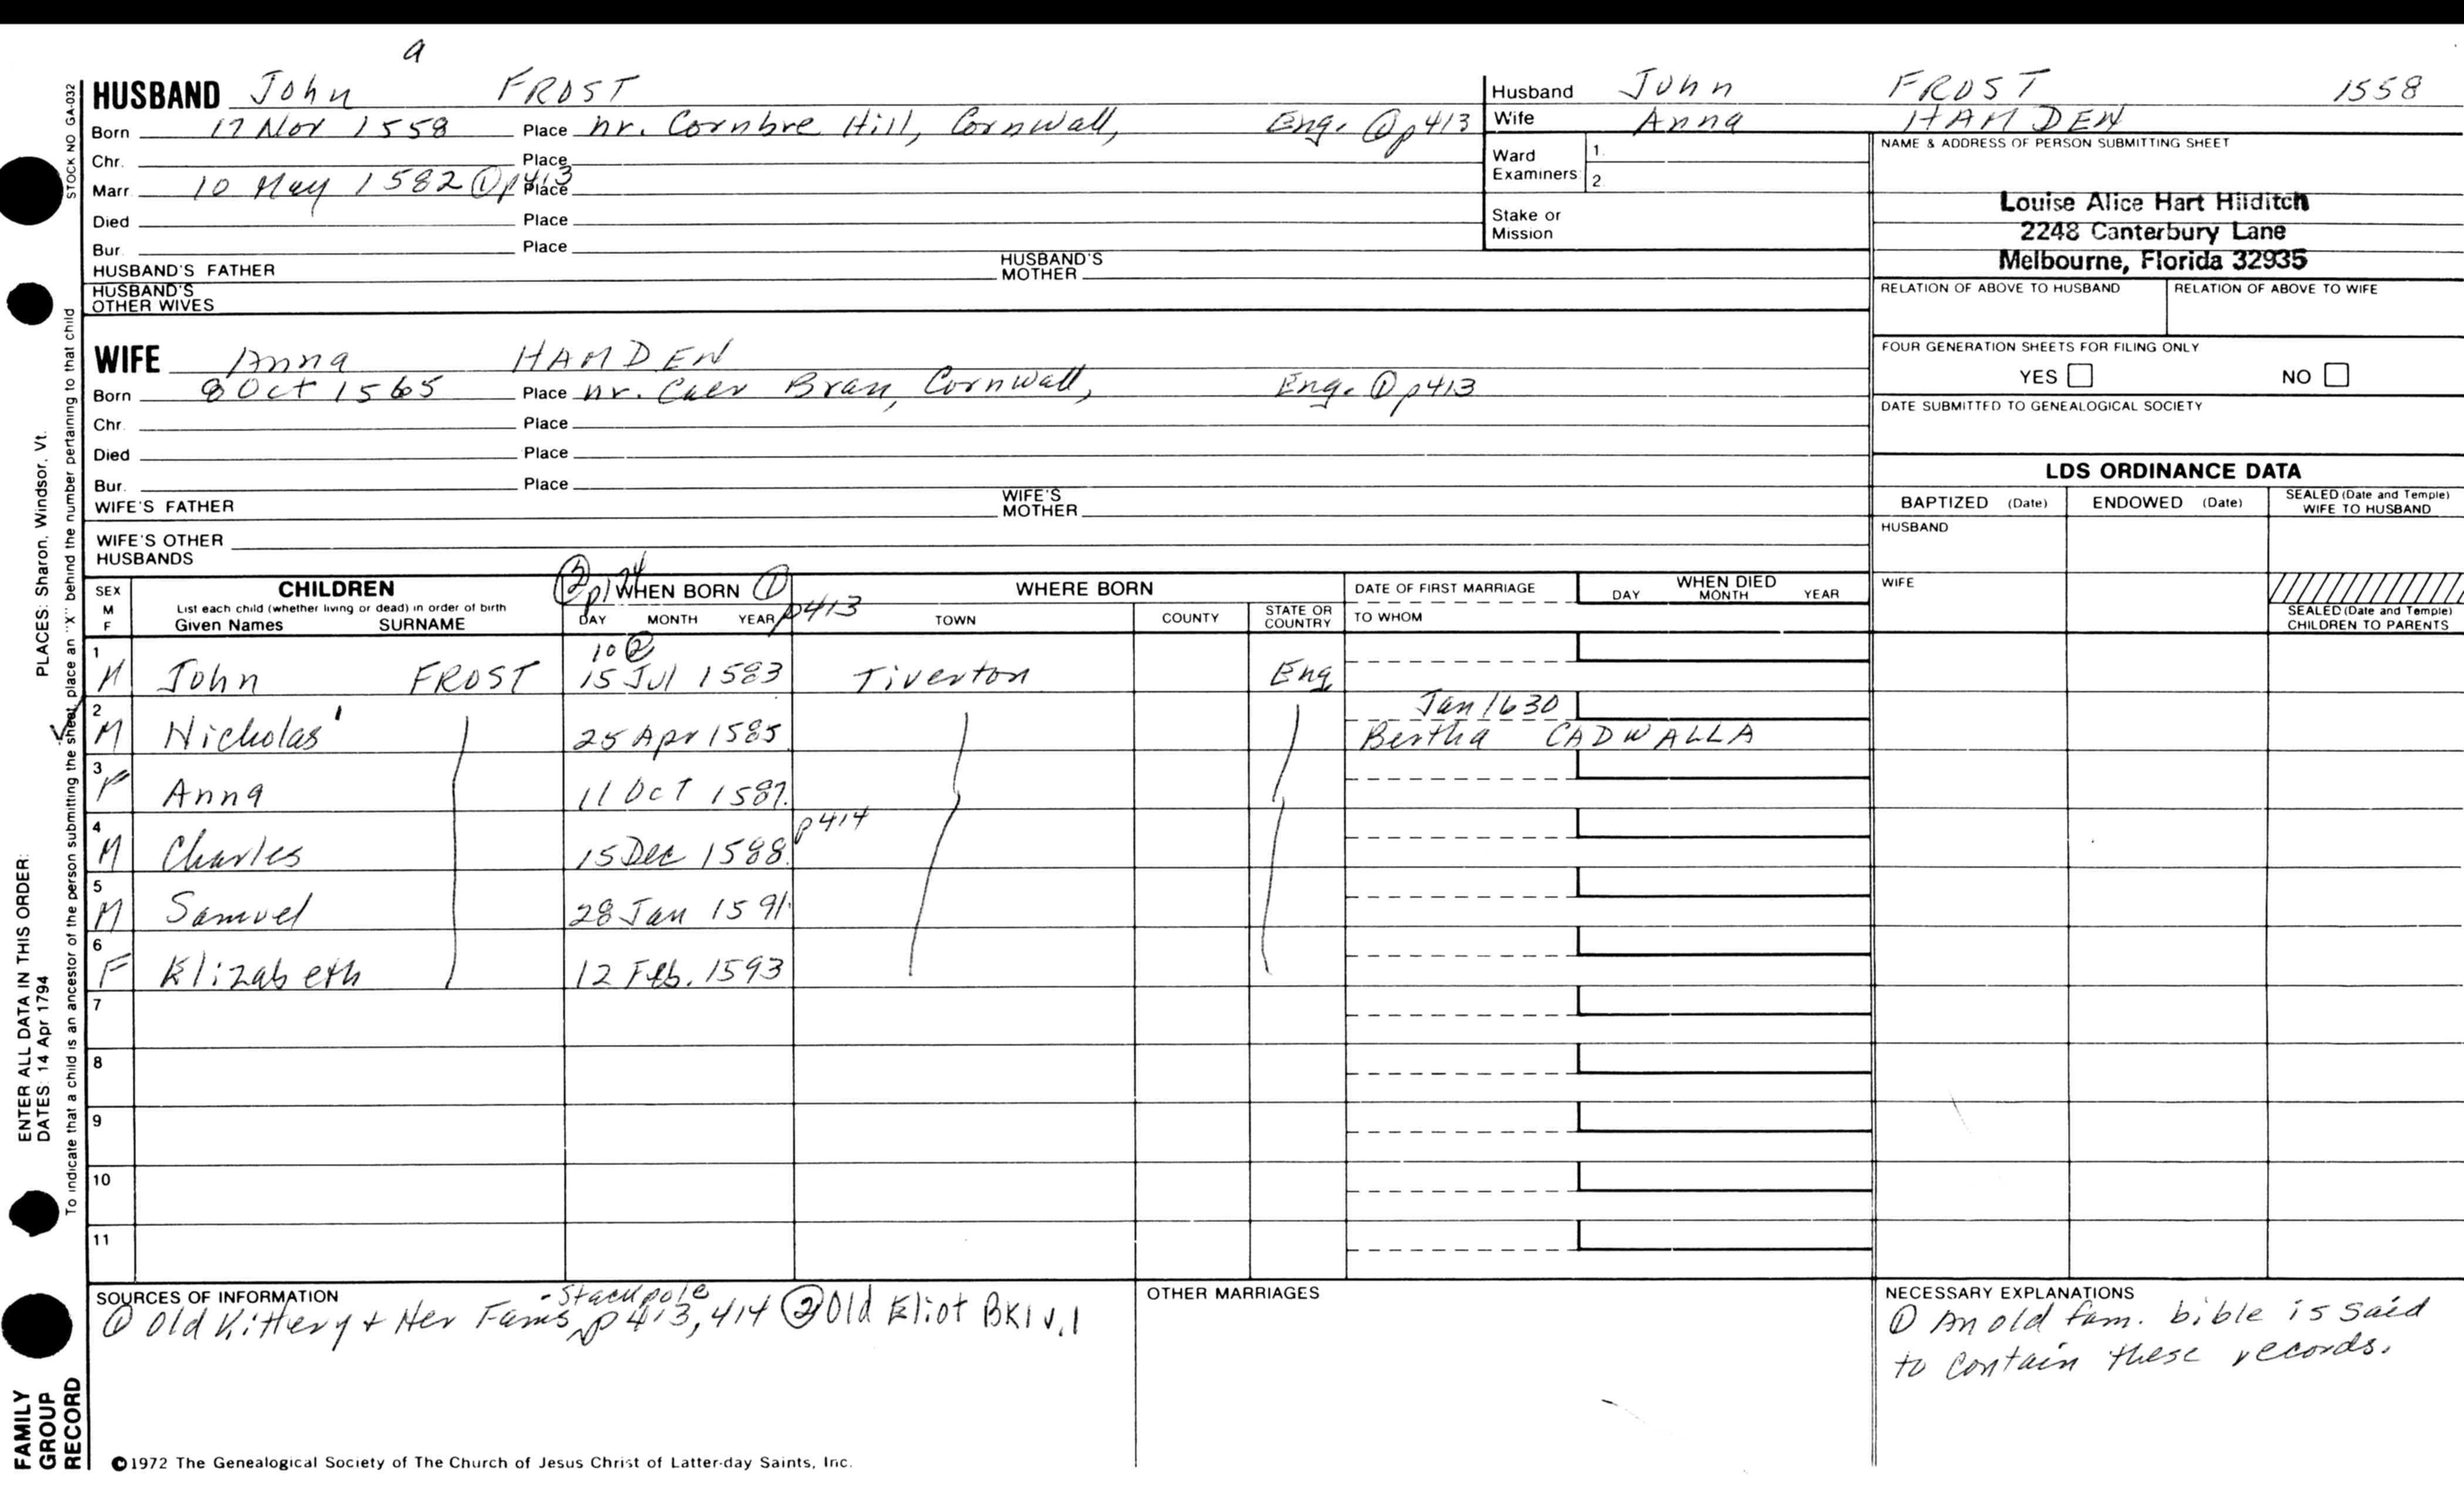 a
HUSBAND John FROST
Born 17 Nov 1558 Place nr. Cornbre Hill, Cornwall, Eng. ① p413
Chr. Place
Marr. 10 May 1582 ① p413 Place
Died Place
Bur. Place
HUSBAND'S FATHER HUSBAND'S MOTHER
HUSBAND'S OTHER WIVES
Husband John FROST 1558
Wife Anna HAMDEN
Ward Examiners 1.
2.
Stake or Mission
NAME & ADDRESS OF PERSON SUBMITTING SHEET
Louise Alice Hart Hilditch
2248 Canterbury Lane
Melbourne, Florida 32935
RELATION OF ABOVE TO HUSBAND RELATION OF ABOVE TO WIFE
FOUR GENERATION SHEETS FOR FILING ONLY
YES NO
DATE SUBMITTED TO GENEALOGICAL SOCIETY
WIFE Anna HAMDEN
Born 8 Oct 1565 Place nr. Caer Bran, Cornwall, Eng. ① p413
Chr. Place
Died Place
Bur. Place
WIFE'S FATHER WIFE'S MOTHER
WIFE'S OTHER HUSBANDS
LDS ORDINANCE DATA
BAPTIZED (Date) ENDOWED (Date) SEALED (Date and Temple) WIFE TO HUSBAND
HUSBAND
WIFE
SEALED (Date and Temple) CHILDREN TO PARENTS
SEX M F
CHILDREN
List each child (whether living or dead) in order of birth
Given Names SURNAME
② WHEN BORN ① p413
DAY MONTH YEAR
WHERE BORN
TOWN COUNTY STATE OR COUNTRY
DATE OF FIRST MARRIAGE
TO WHOM
WHEN DIED
DAY MONTH YEAR
10 ②
1 M John FROST 15 Jul 1583 Tiverton Eng
Jan 1630
2 M Nicholas 25 Apr 1585 Bertha CADWALLA
3 F Anna 11 Oct 1587
p414
4 M Charles 15 Dec 1588
5 M Samuel 28 Jan 1591
6 F Elizabeth 12 Feb. 1593
7
8
9
10
11
SOURCES OF INFORMATION
- Stackpole
① Old Kittery & Her Fams p413, 414 ② Old Eliot BK1 v.1
OTHER MARRIAGES
NECESSARY EXPLANATIONS
① An old fam. bible is said
to contain these records.
©1972 The Genealogical Society of The Church of Jesus Christ of Latter-day Saints, Inc.
STOCK NO GA-032
To indicate that a child is an ancestor of the person submitting the sheet, place an "X" behind the number pertaining to that child
PLACES: Sharon, Windsor, Vt.
ENTER ALL DATA IN THIS ORDER:
DATES: 14 Apr 1794
FAMILY GROUP RECORD